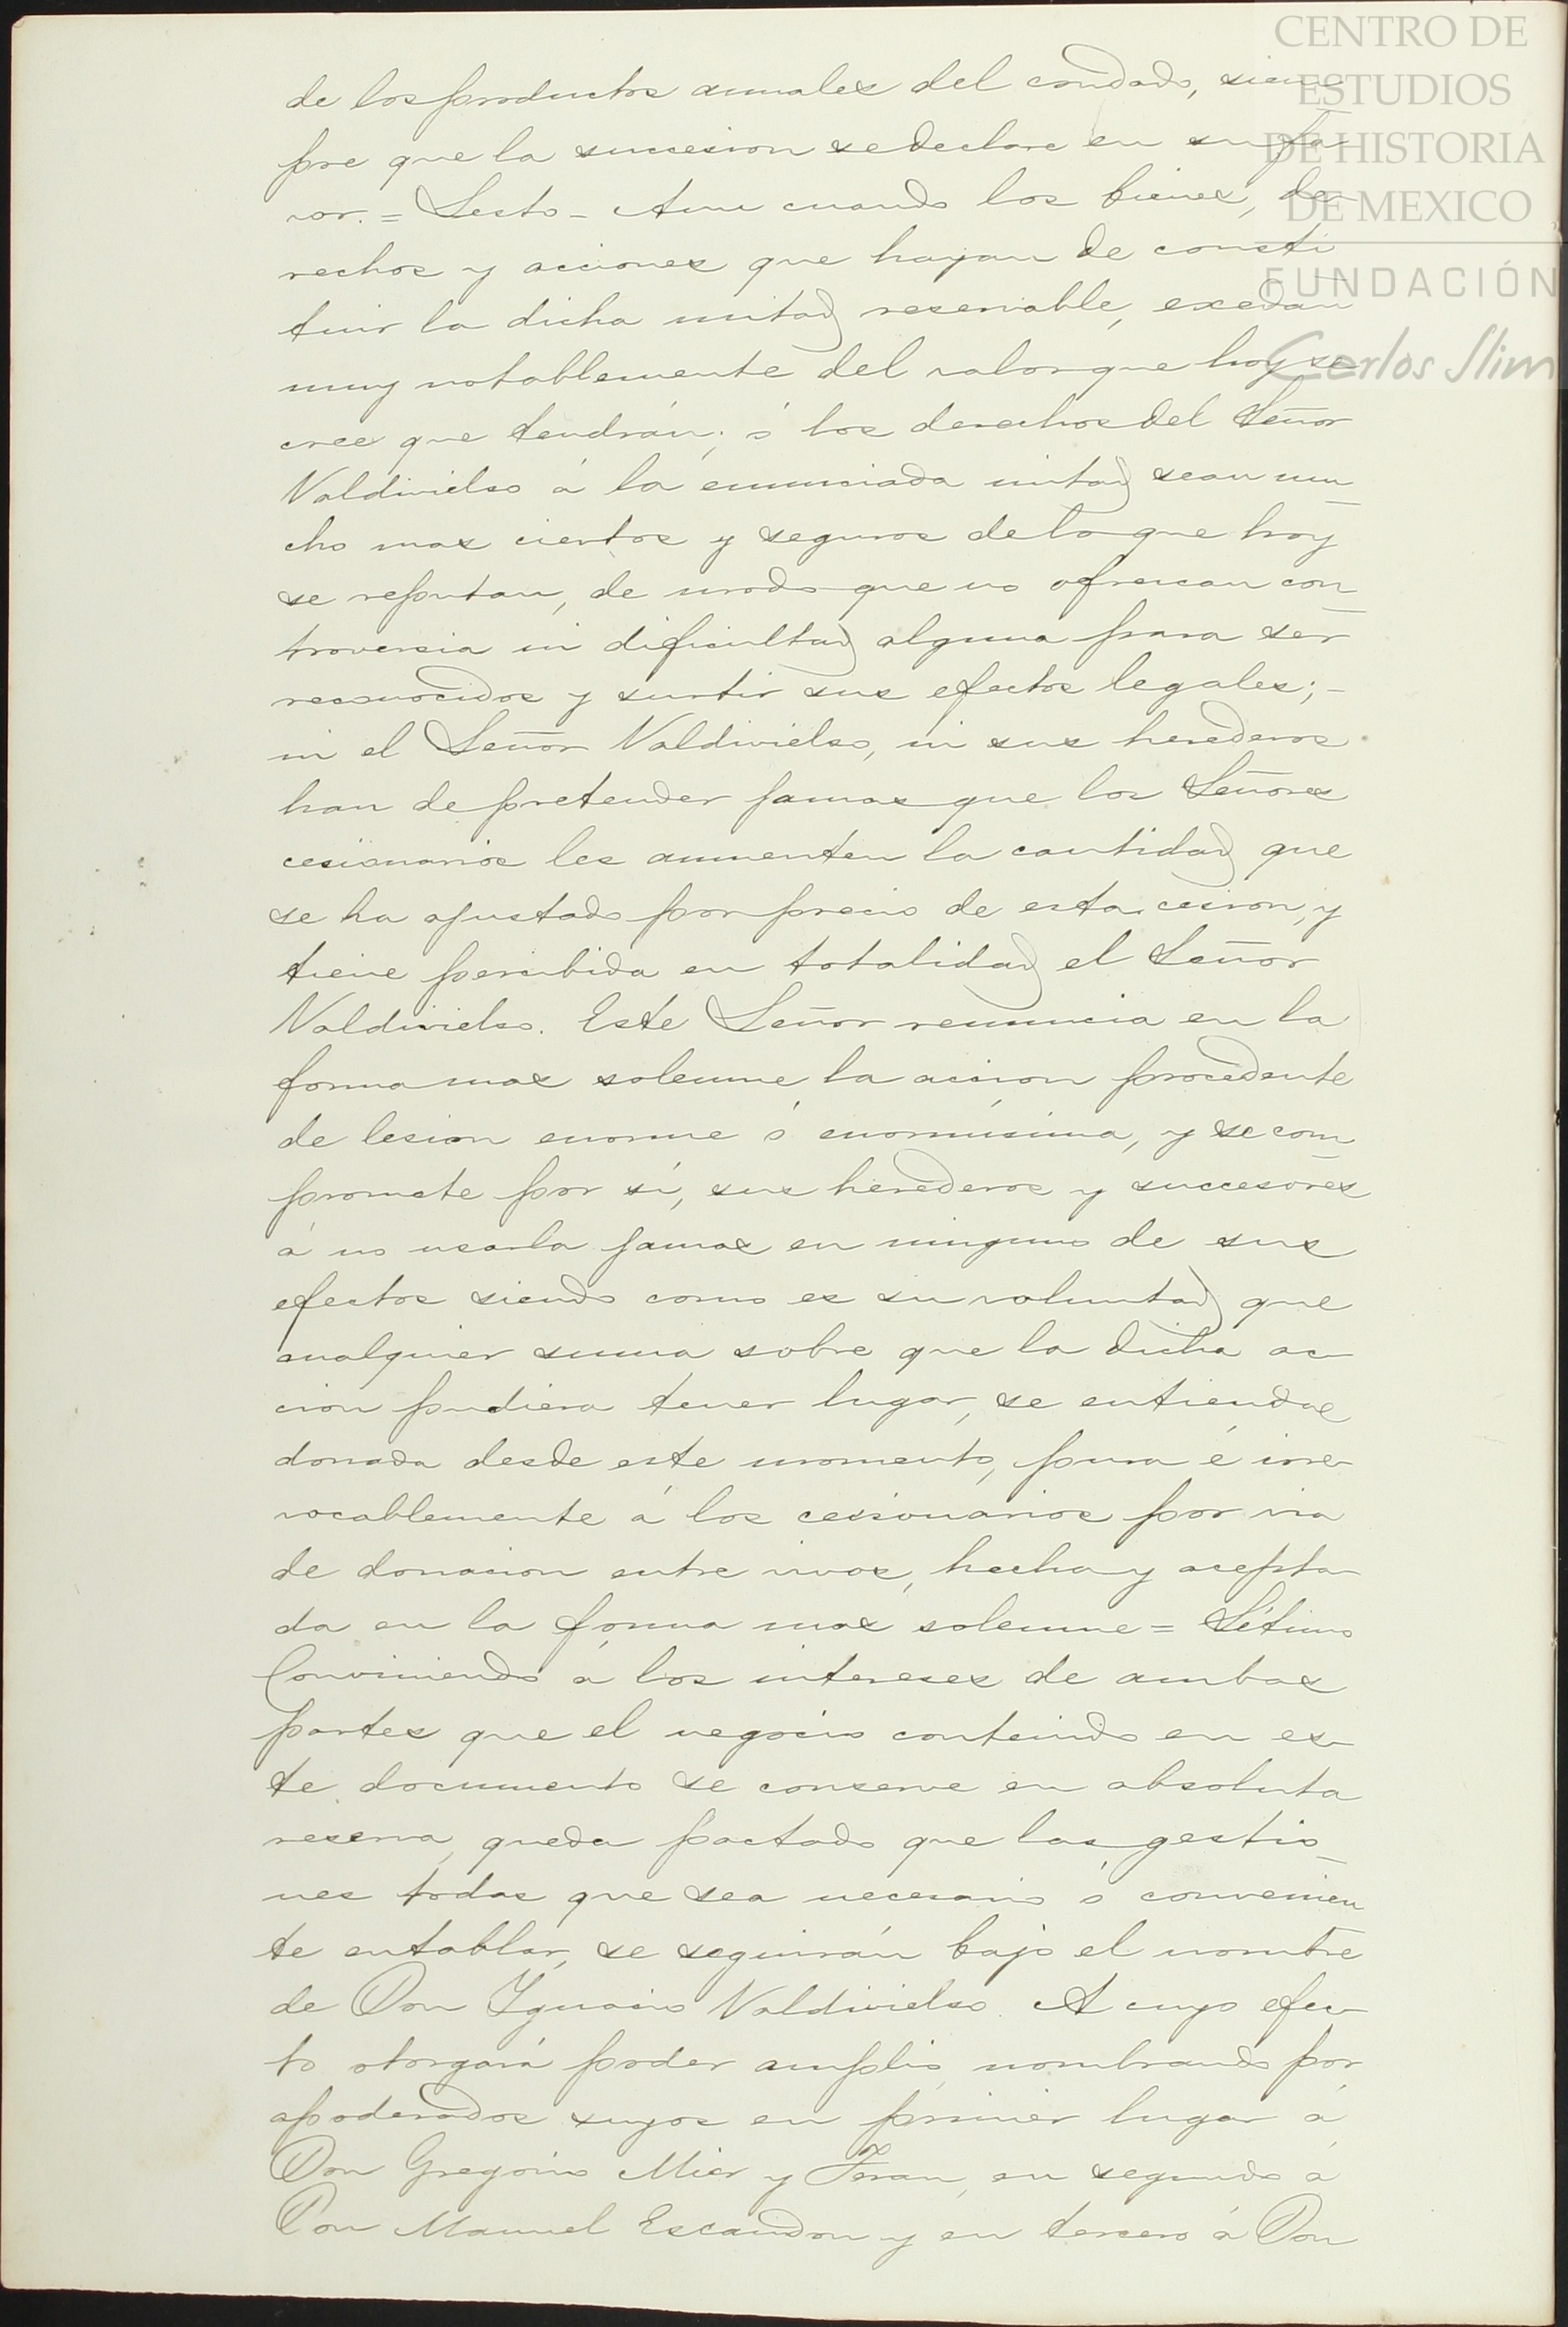 CENTRO DE
ESTUDIOS
DE HISTORIA
DE MEXICO
FUNDACIÓN
Carlos Slim
de los productos anuales del condado, siem
pre que la succesion se declare en su fa
vor. = Sesto - Aun cuando los bienes, de
rechos y acciones que hayan de consti
tuir la dicha mitad reservable, exedan
muy notablemente del valor que hoy se
cree que tendrán; ó los derechos del Señor
Valdivielso á la enunciada mitad sean mu
cho mas ciertos y seguros de lo que hoy
se reputan, de modo que no ofrescan con
troversia ni dificultad alguna para ser
reconocidos y surtir sus efectos legales; -
ni el Señor Valdivielso, ni sus herederos
han de pretender jamas que los Señores
cesionarios les aumenten la cantidad que
se ha ajustado por precio de esta cesion, y
tiene percibida en totalidad el Señor
Valdivielso. Este Señor renuncia en la
forma mas solemne la accion procedente
de lesion enorme ó enormísima, y se com
promete por sí, sus herederos y succesores
á no usarla jamas en ninguno de sus
efectos siendo como es su voluntad que
cualquier suma sobre que la dicha ac
cion pudiera tener lugar, se entienda
donada desde este momento, pura é irre
vocablemente á los cesionarios por via
de donacion entre vivos, hecha y acepta
da en la forma mas solemne = Sétimo
Conviniendo á los intereses de ambas
partes que el negocio contenido en es
te documento se conserve en absoluta
reserva, queda pactado que las gestio
nes todas que sea necesario ó convenien
te entablar, se seguirán bajo el nombre
de Don Ygnacio Valdivielso. A cuyo efec
to otorgará poder amplio, nombrando por
apoderados suyos en primer lugar á
Don Gregorio Mier y Teran, en segundo á
Don Manuel Escandon y en tercero á Don